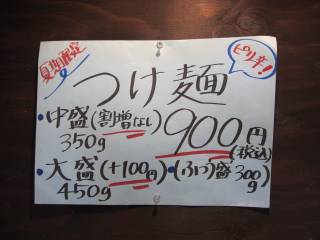 夏期限定
ピリ辛!
つけ麺
・中盛(割増なし)
350g
900円
(税込)
・大盛(+100円)
450g
・(ふつう)盛300g